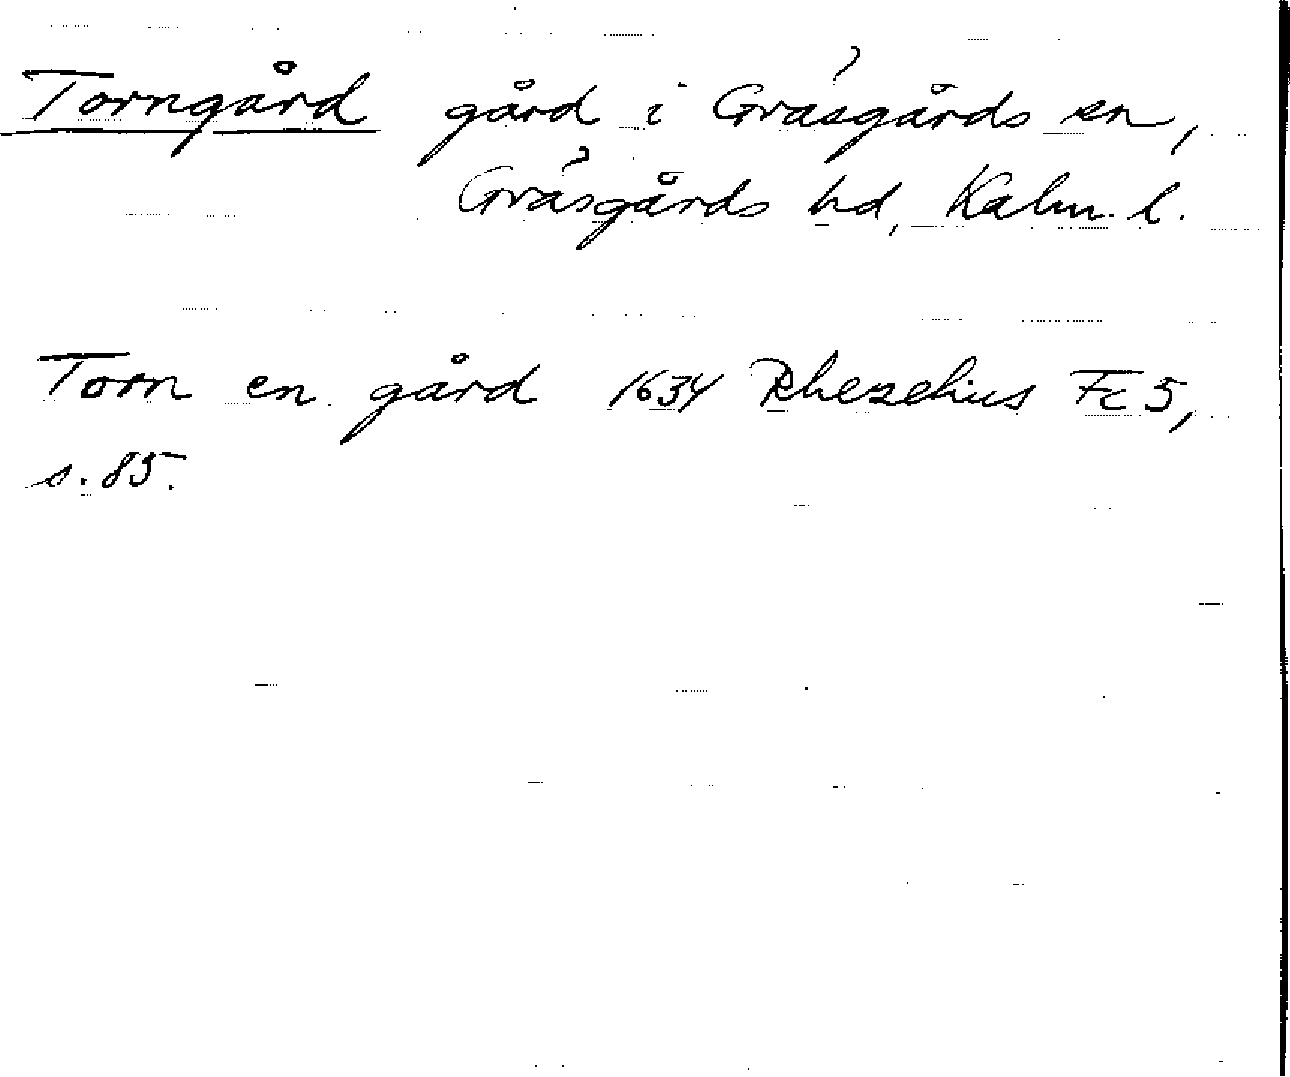 Torngård gård i Gräsgårds sn,
Gräsgårds hd, Kalm. l.
Torn en gård 1634 Rhezelius Fc 5,
s. 85.